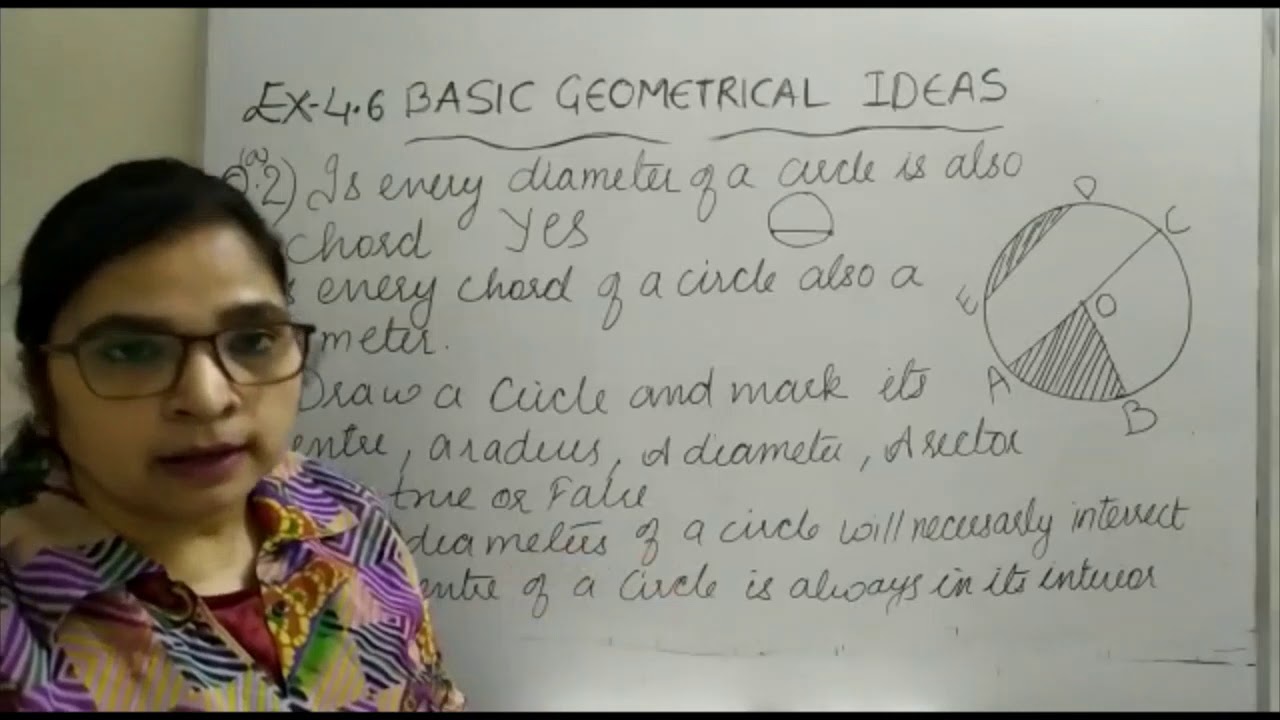 EX-4.6 BASIC GEOMETRICAL IDEAS
(a)
Q.2) Is every diameter of a circle is also
chord Yes
every chord of a circle also a
meter.
Draw a Circle and mark its
entre, a radius, A diameter, A sector
true or False
diameters of a circle will necessarly intersect
entre of a Circle is always in its interior
D
C
E
O
A
B